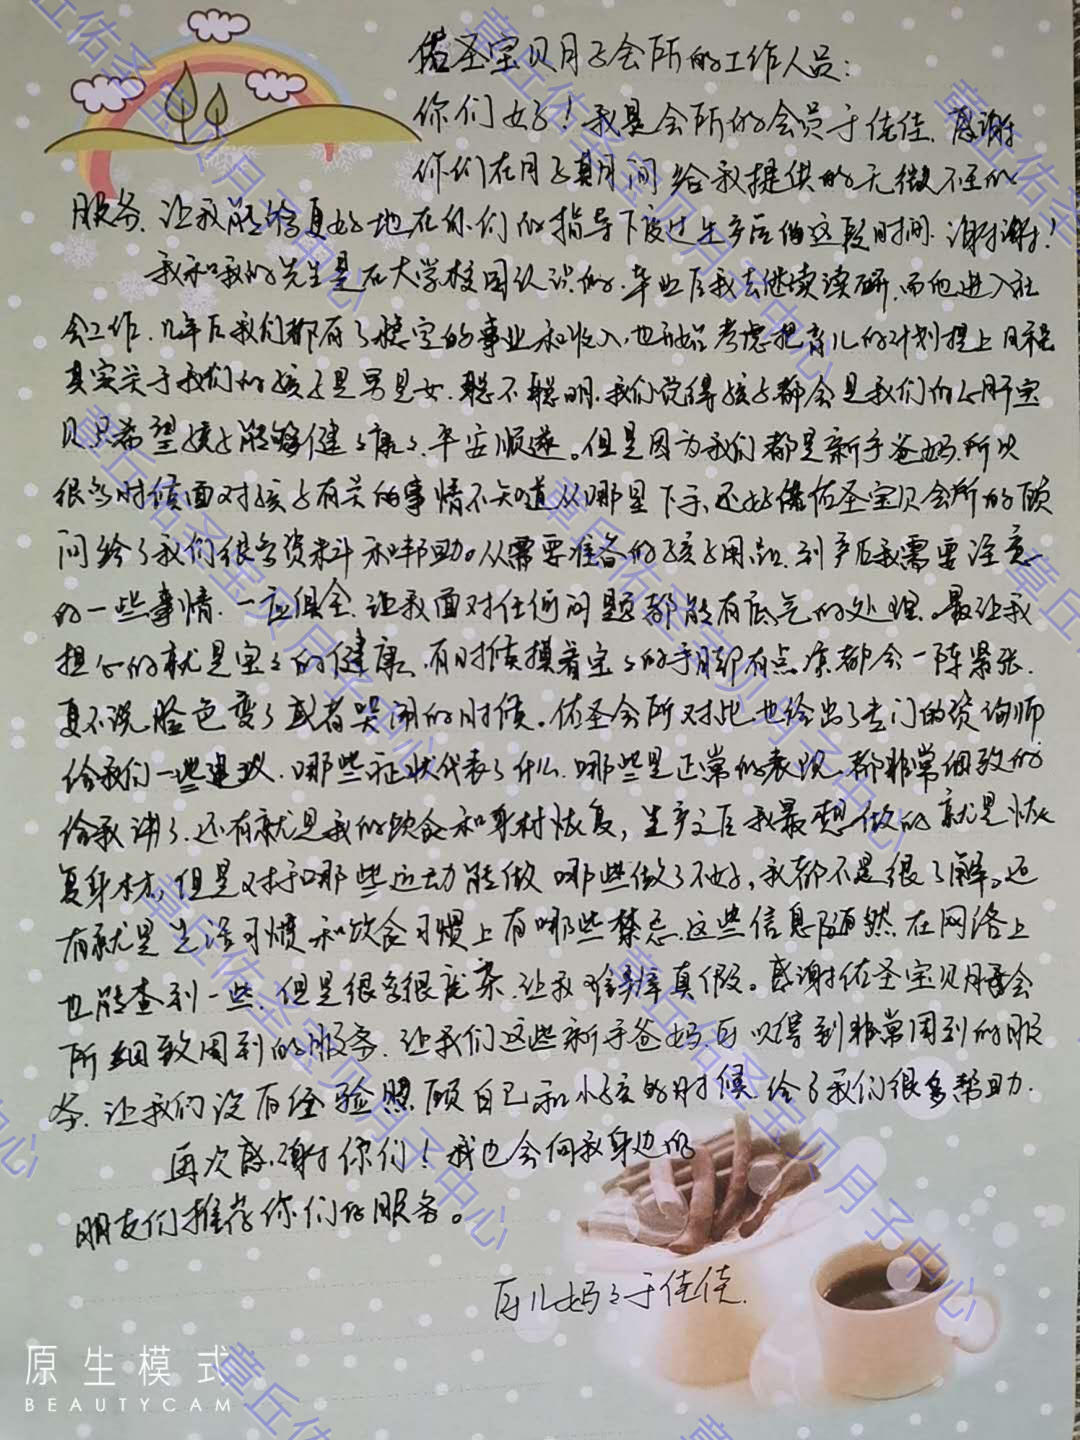 佑圣宝贝月子会所的工作人员：
你们好！我是会所的会员于佳佳.感谢
你们在月子期间给我提供的无微不至的
服务.让我能够更好地在你们的指导下度过生产后的这段时间.谢谢！
我和我的先生是在大学校园认识的.毕业后我去继续读研.而他进入社
会工作.几年后我们都有了稳定的事业和收入,也开始考虑把育儿的计划提上日程
其实关于我们的孩子是男是女.聪不聪明.我们觉得孩子都会是我们的心肝宝
贝只希望孩子能够健健康康.平安顺遂。但是因为我们都是新手爸妈.所以
很多时候面对孩子有关的事情不知道从哪里下手、还好佑圣宝贝会所的顾
问给了我们很多资料和帮助。从需要准备的孩子用品.到产后我需要注意
的一些事情.一应俱全.让我面对任何问题都能有底气的处理。最让我
担心的就是宝宝的健康、有时候摸着宝宝的手脚有点凉都会一阵紧张.
更不说脸色变了或者哭闹的时候。佑圣会所对此也给出了专门的咨询师
给我们一些建议.哪些症状代表了什么.哪些是正常的表现、都非常细致的
给我讲了.还有就是我的饮食和身材恢复，生产之后我最想做的就是恢
复身材，但是对于哪些运动能做 哪些做了不好，我都不是很了解。还
有就是生活习惯和饮食习惯上有哪些禁忌.这些信息虽然在网络上
也能查到一些.但是很多很庞杂.让我难辨真假。感谢佑圣宝贝月子会
所细致周到的服务.让我们这些新手爸妈.可以得到非常周到的服
务.让我们没有经验照顾自己和小孩的时候给了我们很多帮助.
再次感谢你们！我也会向我身边的
朋友们推荐你们的服务。
妈妈于佳佳.
原生模式
BEAUTYCAM
章丘佑圣宝贝月子中心